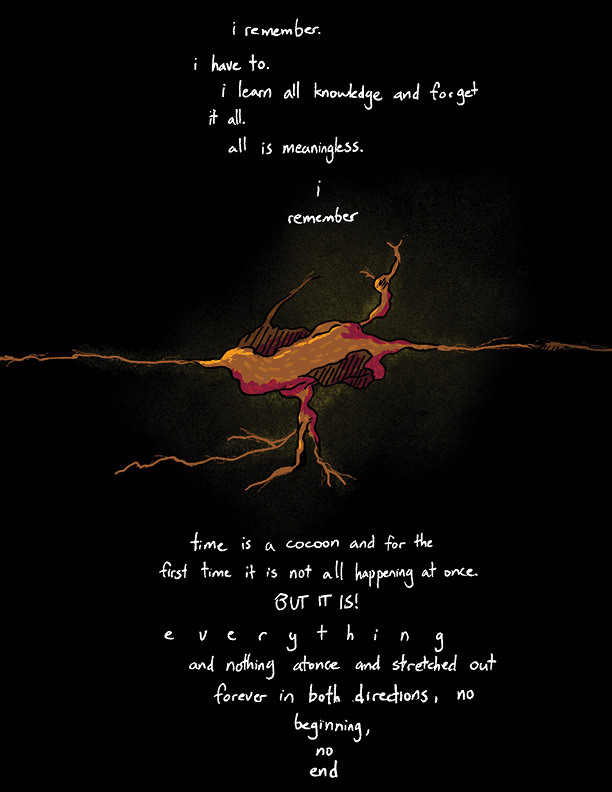 i remember.
i have to.
i learn all knowledge and forget
it all.
all is meaningless.
i
remember
time is a cocoon and for the
first time it is not all happening at once.
BUT IT IS!
e v e r y t h i n g
and nothing atonce and stretched out
forever in both directions, no
beginning,
no
end